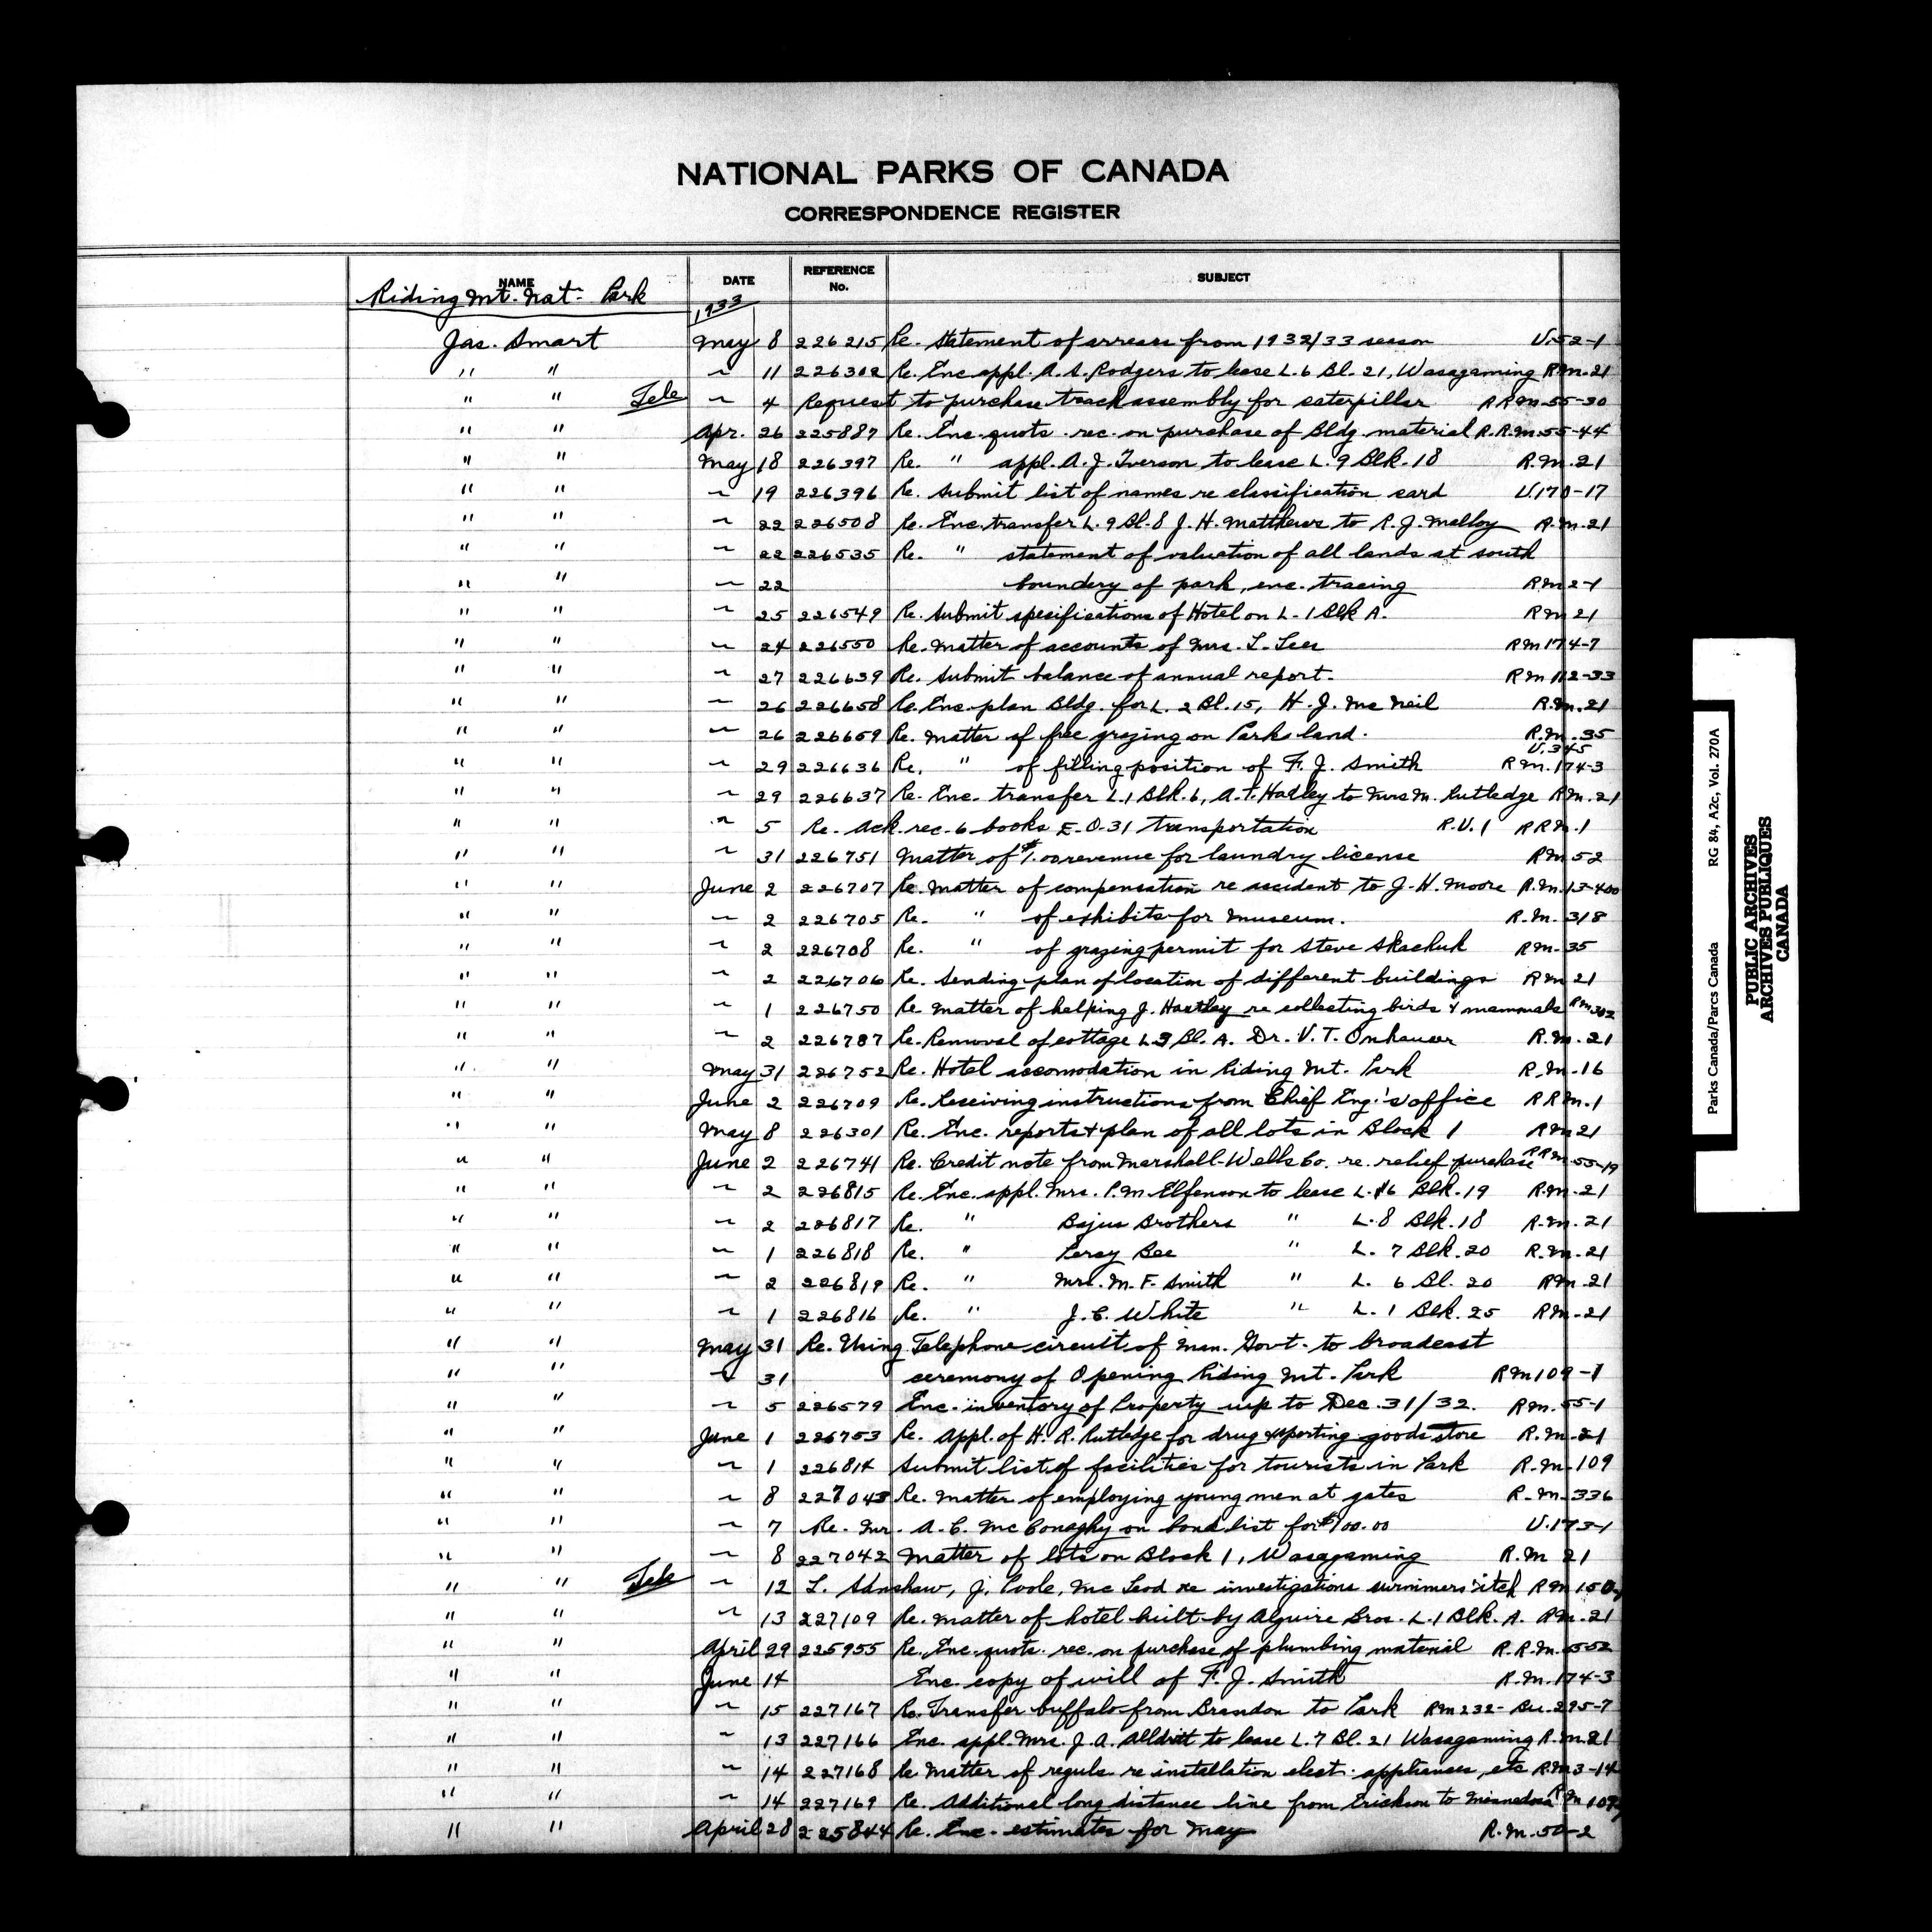 NATIONAL PARKS OF CANADA
CORRESPONDENCE REGISTER
NAME DATE REFERENCE No. SUBJECT
Riding Mt. Nat. Park 1933
Jas. Smart May 8 226215 Re. Statement of arrears from 1932/33 season U.52-1
" " ~ 11 226302 Re. Enc appl. A. S. Rodgers to lease L. 6 Bl. 21, Wasagaming R.M.21
" " Tele ~ 4 Request to purchase track assembly for caterpillar R R M 55-30
" " Apr. 26 225887 Re. Enc. quots. rec. on purchase of Bldg. material R.R.M.55-44
" " May 18 226397 Re. " appl. A. J. Iverson to lease L. 9 Blk. 18 R.M.21
" " ~ 19 226396 Re. Submit list of names re classification card U.170-17
" " ~ 22 226508 Re. Enc. transfer L. 9 Bl. 8 J. H. Matthews to R. J. Malloy R.M.21
" " ~ 22 226535 Re. " statement of valuation of all lands at south
" " ~ 22 boundery of park, enc. tracing R M 2-1
" " ~ 25 226549 Re. Submit specifications of Hotel on L. 1 Blk A. R M 21
" " ~ 24 226550 Re. Matter of accounts of Mrs. L. Lees R M 174-7
" " ~ 27 226639 Re. Submit balance of annual report. R M 112-33
" " ~ 26 226658 Re. Enc. plan Bldg. for L. 2 Bl. 15, H. J. Mc Neil R.M.21
" " ~ 26 226659 Re. Matter of free grazing on Parks land. R.M.35
U.345
" " ~ 29 226636 Re. " of filling position of F. J. Smith R M.174-3
" " ~ 29 226637 Re. Enc. transfer L.1 Blk. 6, A. T. Hadley to Mrs M. Rutledge R M.21
" " ~ 5 Re. Ack. rec. 6 books E.O.31 transportation R.U.1 R R M.1
" " ~ 31 226751 Matter of $1.00 revenue for laundry license R M 52
" " June 2 226707 Re. Matter of compensation re accident to J. H. Moore R.M.13-400
" " ~ 2 226705 Re. " of exhibits for museum. R.M.318
" " ~ 2 226708 Re. " of grazing permit for Steve Skachuk R M.35
" " ~ 2 226706 Re. Sending plan of location of different buildings R M 21
" " ~ 1 226750 Re Matter of helping J. Hartley re collecting birds & mammals R M 302
" " ~ 2 226787 Re. Removal of cottage L 3 Bl. A. Dr. V. T. Onhauser R.M.21
" " May 31 226752 Re. Hotel accomodation in Riding Mt. Park R.M.16
" " June 2 226709 Re. Receiving instructions from Chief Eng.'s office R R M.1
" " May 8 226301 Re. Enc. reports & plan of all lots in Block 1 R M 21
" " June 2 226741 Re. Credit note from Marshall-Wells Co. re. relief purchase R R M 55-19
" " ~ 2 226815 Re. Enc. appl. Mrs. P. M. Elfenson to lease L. 16 Blk. 19 R.M.21
" " ~ 2 226817 Re. " Bajus Brothers " L. 8 Blk. 18 R.M.21
" " ~ 1 226818 Re. " Percy Bee " L. 7 Blk. 20 R.M.21
" " ~ 2 226819 Re. " Mrs. M. F. Smith " L. 6 Bl. 20 R M.21
" " ~ 1 226816 Re. " J. C. White " L. 1 Blk. 25 R M.21
" " May 31 Re. Using Telephone circuit of Man. Govt. to broadcast
" " ~ 31 ceremony of Opening Riding Mt. Park R M 109-1
" " ~ 5 226579 Enc. inventory of Property up to Dec. 31/32. R M.55-1
" " June 1 226753 Re. Appl. of H. R. Rutledge for drug sporting goods store R.M.21
" " ~ 1 226814 Submit list of facilities for tourists in Park R.M.109
" " ~ 8 227043 Re. Matter of employing young men at gates R.M.336
" " ~ 7 Re. Mr. A. C. Mc Conaghy on bond list for $100.00 U.173-1
" " ~ 8 227042 Matter of lots on Block 1, Wasagaming R.M 21
" " Tele ~ 12 T. Adnshaw, J. Poole, Mc Leod re investigations swimmers itch R M 150
" " ~ 13 227109 Re. Matter of hotel built by Alguire Bros. L.1 Blk. A. R M.21
" " April 29 225955 Re. Enc. quots. rec. on purchase of plumbing material R.R.M.5552
" " June 14 Enc. copy of will of F. J. Smith R.M.174-3
" " ~ 15 227167 Re. Transfer buffalo from Brandon to Park R M 232- Bu.295-7
" " ~ 13 227166 Enc. appl. Mrs. J. A. Alldritt to lease L. 7 Bl. 21 Wasagaming R.M.21
" " ~ 14 227168 Re Matter of reguls re installation elect. appliances, etc R.M 3-14
" " ~ 14 227169 Re. Additional long distance line from Erickson to Minnedosa R M 109
" " April 28 225844 Re. Enc. estimates for May R.M.50-2
Parks Canada/Parcs Canada RG 84, A2c, Vol. 270A
PUBLIC ARCHIVES
ARCHIVES PUBLIQUES
CANADA